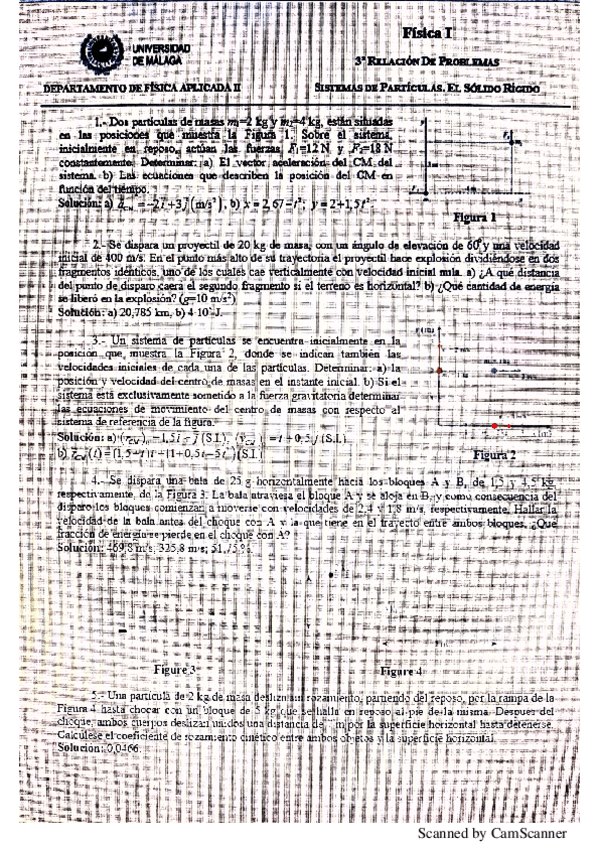 Física I
UNIVERSIDAD
DE MÁLAGA
3ª RELACIÓN DE PROBLEMAS
DEPARTAMENTO DE FÍSICA APLICADA II
SISTEMAS DE PARTÍCULAS. EL SÓLIDO RÍGIDO
1.- Dos partículas de masas m₁=2 kg y m₂=4 kg, están situadas
en las posiciones que muestra la Figura 1. Sobre el sistema,
inicialmente en reposo, actúan las fuerzas F₁=12 N y F₂=18 N
constantemente. Determinar: a) El vector aceleración del CM del
sistema. b) Las ecuaciones que describen la posición del CM en
función del tiempo.
Solución: a) = -2i + 3j (m/s²), b) x = 2,67 - t²; y = 2+1,5t²
Figura 1
2.- Se dispara un proyectil de 20 kg de masa, con un ángulo de elevación de 60° y una velocidad
inicial de 400 m/s. En el punto más alto de su trayectoria el proyectil hace explosión dividiéndose en dos
fragmentos idénticos, uno de los cuales cae verticalmente con velocidad inicial nula. a) ¿A qué distancia
del punto de disparo caerá el segundo fragmento si el terreno es horizontal? b) ¿Qué cantidad de energía
se liberó en la explosión? (g=10 m/s²)
Solución: a) 20,785 km, b) 4·10⁵ J.
3.- Un sistema de partículas se encuentra inicialmente en la
posición que muestra la Figura 2, donde se indican también las
velocidades iniciales de cada una de las partículas. Determinar: a) la
posición y velocidad del centro de masas en el instante inicial. b) Si el
sistema está exclusivamente sometido a la fuerza gravitatoria determinar
las ecuaciones de movimiento del centro de masas con respecto al
sistema de referencia de la figura.
Solución: a)
Figura 2
4.- Se dispara una bala de 25 g horizontalmente hacia los bloques A y B, de 1,5 y 4,5 kg,
respectivamente, de la Figura 3. La bala atraviesa el bloque A y se aloja en B, y como consecuencia del
disparo los bloques comienzan a moverse con velocidades de 2,4 y 1,8 m/s, respectivamente. Hallar la
velocidad de la bala antes del choque con A y la que tiene en el trayecto entre ambos bloques. ¿Qué
fracción de energía se pierde en el choque con A?
Solución: 469,8 m/s; 325,8 m/s; 51,75%
Figure 3
Figure 4
5.- Una partícula de 2 kg de masa desliza sin rozamiento, partiendo del reposo, por la rampa de la
Figura 4 hasta chocar con un bloque de 5 kg que se halla en reposo al pie de la misma. Después del
choque, ambos cuerpos deslizan unidos una distancia de m por la superficie horizontal hasta detenerse.
Calcúlese el coeficiente de rozamiento cinético entre ambos objetos y la superficie horizontal.
Solución: 0,0466.
Scanned by CamScanner